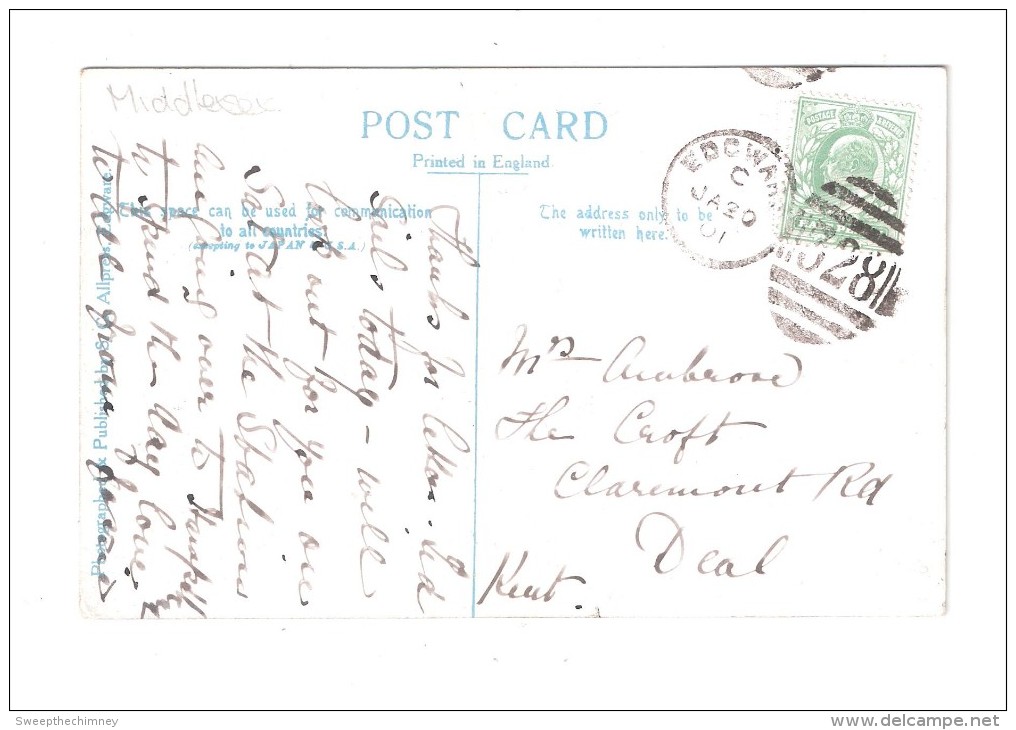 Middlesex
POST CARD
Printed in England.
This space can be used for communication
to all countries.
(excepting to JAPAN & U.S.A.)
The address only to be
written here.
Photographed & Published by S. G. Allpress, Edgware.
POSTAGE
EDGWARE
C
JA 20
01
028
Thanks for letter and
Girls today - will
look out for you on
Sat at the Station
Am going over to
to spend the day love
to all from
Mrs Ambrose
The Croft
Claremont Rd
Deal
Kent.
Sweepthechimney
delcampe.net